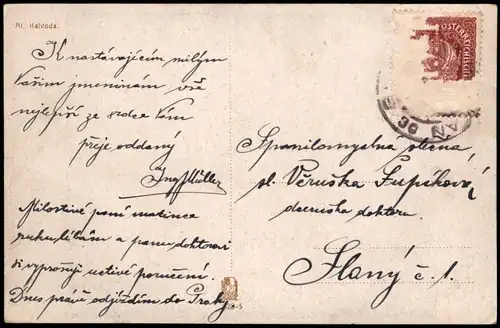 Al. Kalvoda.
K nastávajícím milým
Vašim jmeninám vše
nejlepší ze srdce Vám
přeje oddaný
Ing Müller
Milostivé paní matince
ruku líbám a panu doktorovi
si vyprošuji uctivé poručení.
Dnes právě odjíždím do Prahy
Spanilomyslná slečna,
sl. Věruška Čupíková
dceruška doktora
Slaný č. 1.
ÖSTERREICHISCHE